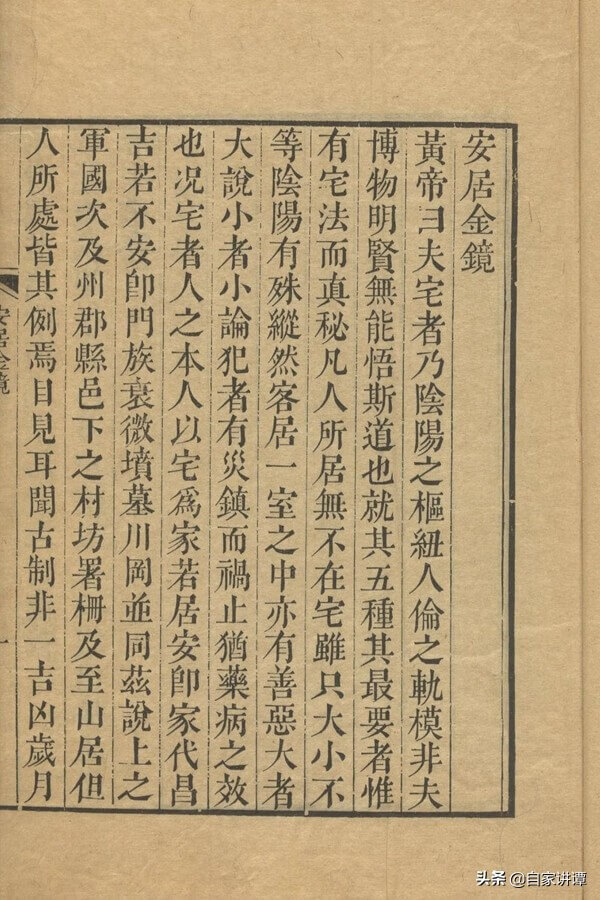 安居金鏡
黃帝曰夫宅者乃陰陽之樞紐人倫之軌模非夫
博物明賢無能悟斯道也就其五種其最要者惟
有宅法而真秘凡人所居無不在宅雖只大小不
等陰陽有殊縱然客居一室之中亦有善惡大者
大說小者小論犯者有災鎮而禍止猶藥病之效
也况宅者人之本人以宅爲家若居安卽家代昌
吉若不安卽門族衰微墳墓川岡並同茲說上之
軍國次及州郡縣邑下之村坊署柵及至山居但
人所處皆其例焉目見耳聞古制非一吉凶歲月
安居金鏡
一
头条 @自家讲谭